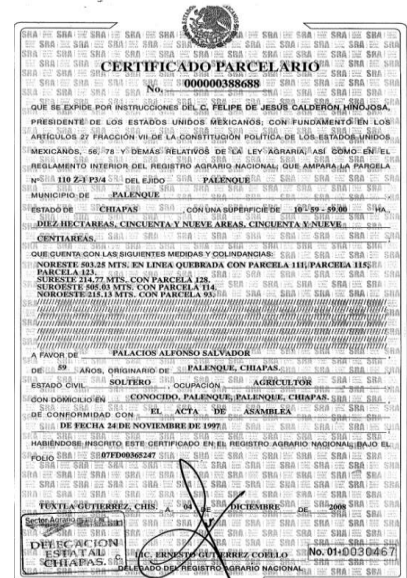 CERTIFICADO PARCELARIO
No. 000000388688
QUE SE EXPIDE POR INSTRUCCIONES DEL C. FELIPE DE JESÚS CALDERÓN HINOJOSA,
PRESIDENTE DE LOS ESTADOS UNIDOS MEXICANOS; CON FUNDAMENTO EN LOS
ARTÍCULOS 27 FRACCIÓN VII DE LA CONSTITUCIÓN POLÍTICA DE LOS ESTADOS UNIDOS
MEXICANOS, 56, 78 Y DEMÁS RELATIVOS DE LA LEY AGRARIA, ASÍ COMO EN EL
REGLAMENTO INTERIOR DEL REGISTRO AGRARIO NACIONAL, QUE AMPARA LA PARCELA
Nº 110 Z-1 P3/4 DEL EJIDO PALENQUE
MUNICIPIO DE PALENQUE
ESTADO DE CHIAPAS , CON UNA SUPERFICIE DE 10 - 59 - 59.00 HA.,
DIEZ HECTAREAS, CINCUENTA Y NUEVE AREAS, CINCUENTA Y NUEVE
CENTIAREAS.
QUE CUENTA CON LAS SIGUIENTES MEDIDAS Y COLINDANCIAS:
NORESTE 503.25 MTS. EN LINEA QUEBRADA CON PARCELA 111, PARCELA 115,
PARCELA 123.
SURESTE 214.77 MTS. CON PARCELA 128.
SUROESTE 505.03 MTS. CON PARCELA 114.
NOROESTE 215.13 MTS. CON PARCELA 93.
A FAVOR DE PALACIOS ALFONSO SALVADOR
DE 59 AÑOS, ORIGINARIO DE PALENQUE, CHIAPAS.
ESTADO CIVIL SOLTERO , OCUPACIÓN AGRICULTOR
CON DOMICILIO EN CONOCIDO, PALENQUE, PALENQUE, CHIAPAS.
DE CONFORMIDAD CON EL ACTA DE ASAMBLEA
DE FECHA 24 DE NOVIEMBRE DE 1997
HABIÉNDOSE INSCRITO ESTE CERTIFICADO EN EL REGISTRO AGRARIO NACIONAL, BAJO EL
FOLIO 07FD00365247
TUXTLA GUTIERREZ, CHIS. A 04 DE DICIEMBRE DE 2008
Sector Agrario
DELEGACION
ESTATAL
CHIAPAS.
LIC. ERNESTO GUTIERREZ COELLO
DELEGADO DEL REGISTRO AGRARIO NACIONAL
No. 01-0030467